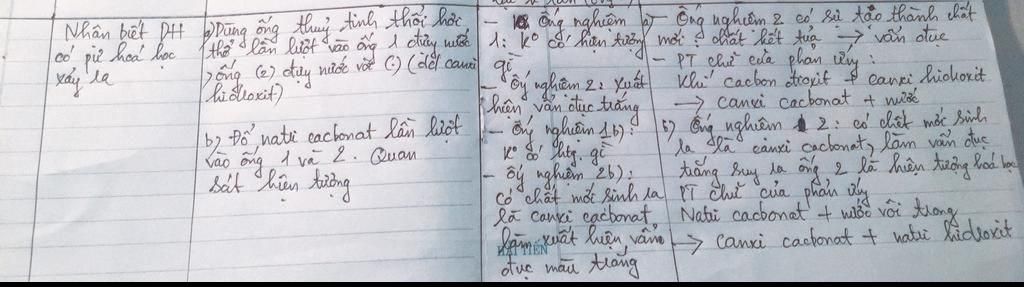 Nhân biết DH
có pứ hoá học
xảy ra
a) Dùng ống thuỷ tinh thổi hơi
thở lần lượt vào ống 1 đựng nước
, ống (2) đựng nước vôi (:) (dd canxi
hiđroxit)
b) Đổ natri cacbonat lần lượt
vào ống 1 và 2. Quan
sát hiện tượng
- Ống nghiệm
1: K° có hiện tượng
gì
- Ố́ nghiệm 2: xuất
hiện vẩn đục trắng
- Ố́ nghiệm 1b):
K° có htg. gì
- ố́ nghiệm 2b):
có chất mới sinh ra
là canxi cacbonat,
làm xuất hiện vẩn
đục màu trắng
HẢI TIẾN
a) - Ống nghiệm 2 có sự tạo thành chất
mới: chất kết tủa → vẩn đục
- PT chữ của phản ứng:
Khí cacbon đioxit + canxi hiđroxit
→ canxi cacbonat + nước
b) Ống nghiệm 2: có chất mới sinh
ra là canxi cacbonat, làm vẩn đục
trắng suy ra ống 2 là hiện tượng hoá học
PT chữ của phản ứng
Natri cacbonat + nước vôi trong
→ canxi cacbonat + natri hiđroxit